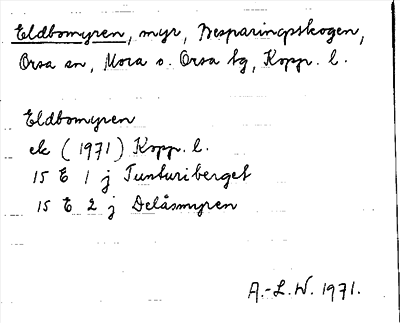 Eldbomyren, myr, Besparingsskogen,
Orsa sn, Mora o. Orsa tg, Kopp. l.
Eldbomyren
ek (1971) Kopp. l.
15 E 1 j Tunturiberget
15 E 2 j Delåsmyren
A.-L.W. 1971.